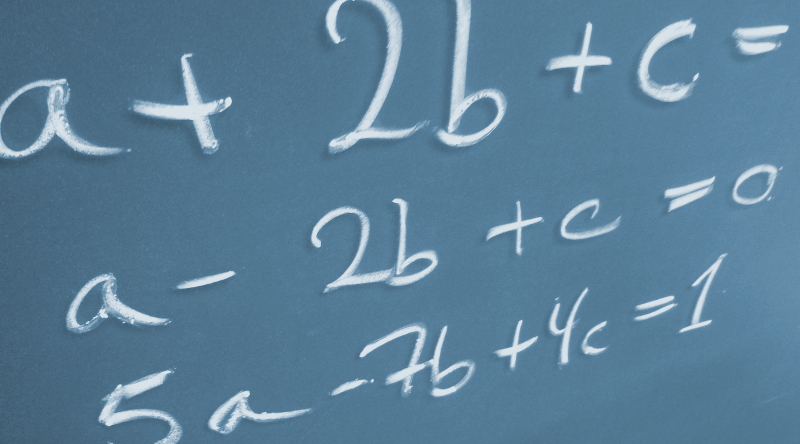 a + 2b + c =
a - 2b + c = 0
5a - 7b + 4c = 1